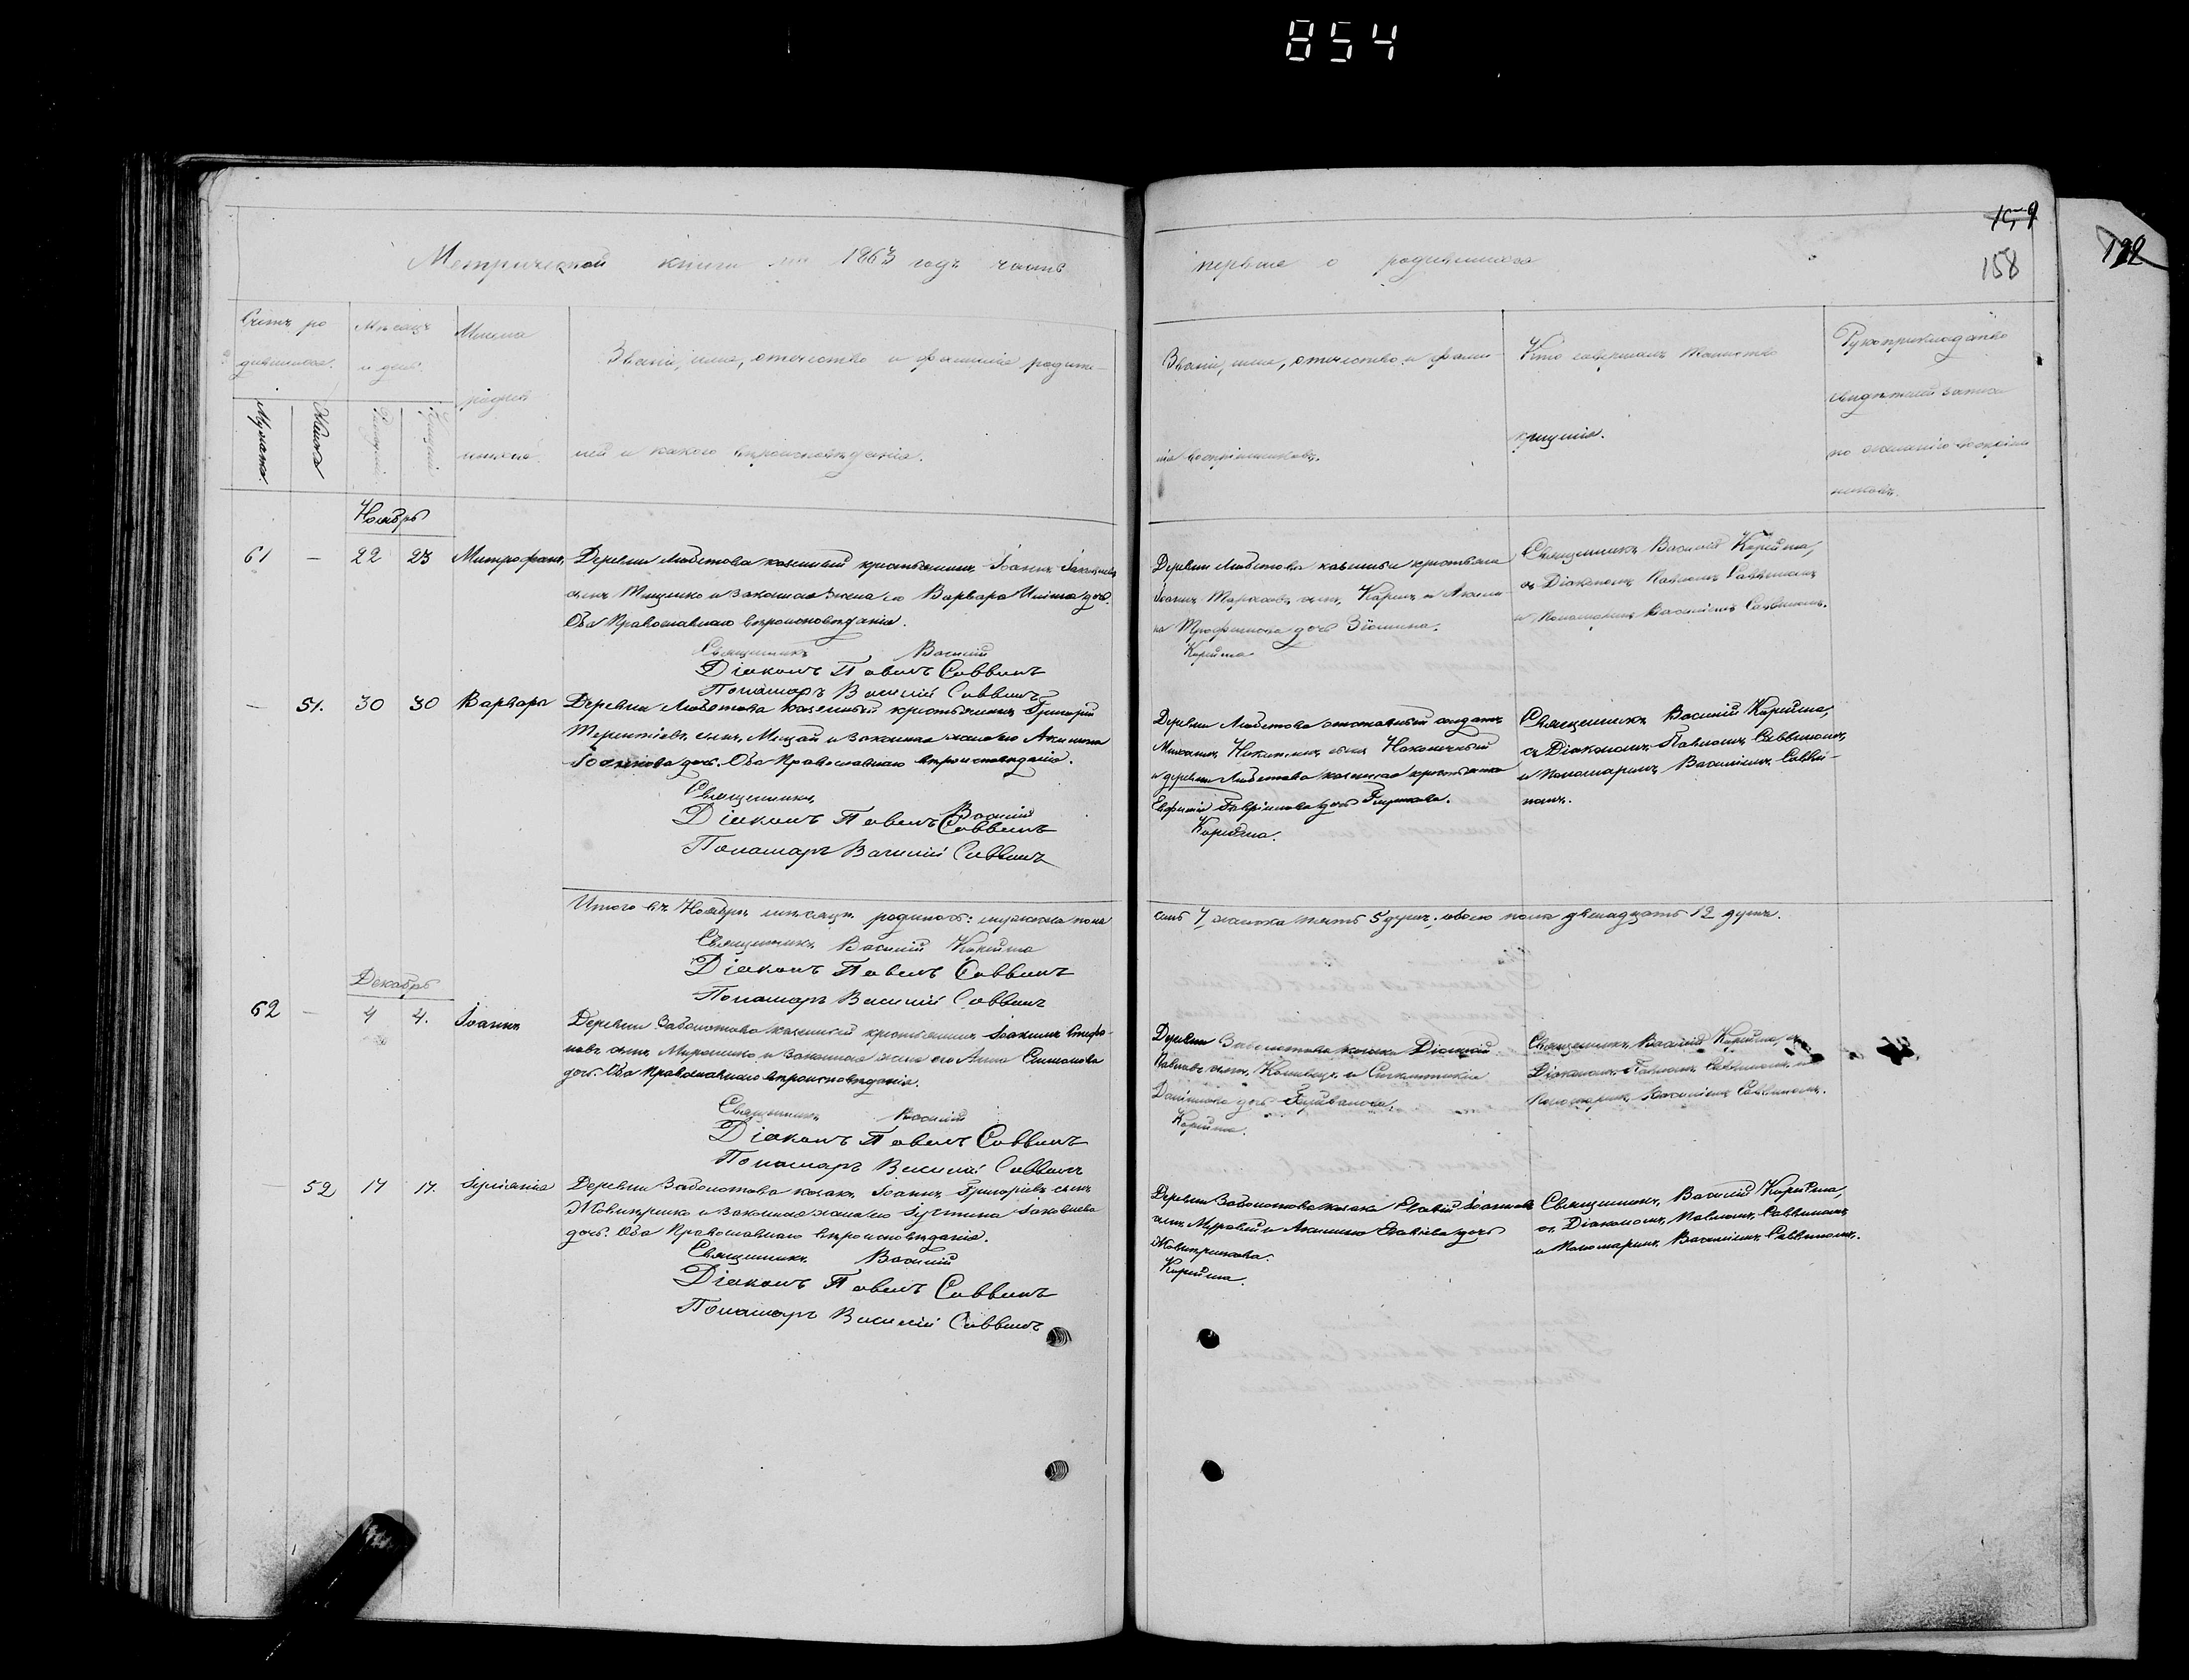 854
159
158
122
Метрической книги на 1863 годъ часть
первая о родившихся
Счетъ ро
дившихся.
Мѣсяцъ
и день.
Имена
родив
шихся.
Мужеска.
Женска
Рожденія.
Крещенія
Званіе, имя, отечество и фамилія родите-
лей и какого вѣроисповѣданія.
Званіе, имя, отечество и фами-
лія воспріемниковъ.
Кто совершалъ таинство
крещенія.
Рукоприкладство
свидѣтелей записи
по желанію
Ноябрь
61 — 22 23 Митрофанъ
Деревни Любетова казенный крестьянинъ Іоаннъ Іаковлевъ
сынъ Тищенко и законная жена его Варвара дочь.
Оба Православнаго вѣроисповѣданія.
Священникъ Василій
Діаконъ Павелъ Саввинъ
Пономарь Василій Саввинъ
Деревни Любетова казенный крестьянинъ
Іоаннъ сынъ и
Трофимова дочь
Корейша
Священникъ Василій Корейша,
съ Діакономъ Павломъ Саввиномъ
и Пономаремъ Василіемъ Саввинымъ.
— 51. 30 30 Варвара
Деревни Любетова казенный крестьянинъ Григорій
Терентіевъ сынъ и законная жена его Акилина
Іоаннова дочь. Оба Православнаго вѣроисповѣданія.
Священникъ Василій
Діаконъ Павелъ Саввинъ
Пономарь Василій Саввинъ
Деревни Любетова отставный солдатъ
Михаилъ Никитинъ сынъ Наконечный
и деревни Любетова казенная крестьянка
Евфимія Гавріилова дочь
Корейша.
Священникъ Василій Корейша,
съ Діакономъ Павломъ Саввиномъ,
и Пономаремъ Василіемъ Савви-
номъ.
Итого въ Ноябрѣ мѣсяцѣ родилось: мужеска пола
семь 7, женска пять 5 душъ; обоего пола двенадцать 12 душъ.
Священникъ Василій Корейша
Діаконъ Павелъ Саввинъ
Пономарь Василій Саввинъ
Декабрь
62 — 4 4. Іоаннъ
Деревни Заболотова казенный крестьянинъ Іоакимъ Стефа-
новъ сынъ Мирошниченко и законная жена его Анна Симонова
дочь. Оба Православнаго вѣроисповѣданія.
Священникъ Василій
Діаконъ Павелъ Саввинъ
Пономарь Василій Саввинъ
Деревни Заболотова казакъ
Павловъ сынъ и Синклитикія
Даніилова дочь
Корейша.
Священникъ Василій Корейша, съ
Діакономъ Павломъ Саввиномъ и
Пономаремъ Василіемъ Саввиномъ.
— 52 17 17. Іуліанія
Деревни Заболотова казакъ Іоаннъ Григоріевъ сынъ
и законная жена его Іустина Іаковлева
дочь. Оба Православнаго вѣроисповѣданія.
Священникъ Василій
Діаконъ Павелъ Саввинъ
Пономарь Василій Саввинъ
Деревни Заболотова казакъ
сынъ и дочь
Корейша.
Священникъ Василій Корейша,
съ Діакономъ Павломъ Саввиномъ
и Пономаремъ Василіемъ Саввиномъ.